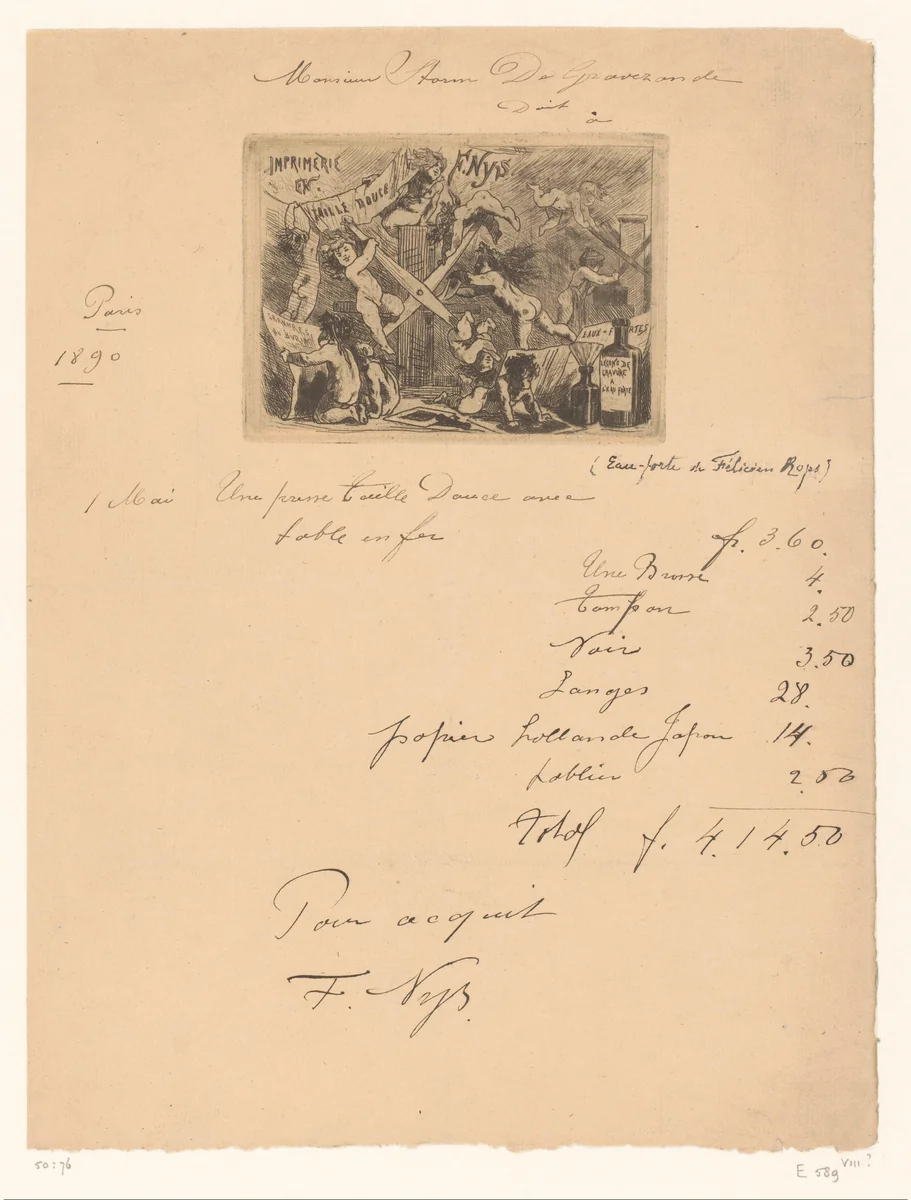 Monsieur Storm De Gravezande
Doit
à
IMPRIMERIE
EN
TAILLE DOUCE
F. Nys
Paris
1890
GRAVURES
AU BURIN
EAUX-F RTES
LEÇONS DE
GRAVURE
A
L'EAU FORTE
(Eau-forte de Félicien Rops)
1 Mai Une presse taille Douce avec
table en fer
fr. 3.60.
Une Brosse 4.
tampon 2.50
Noir 3.50
Langes 28.
papier hollande Japon 14.
tablier 2.50
Total f. 4.14.50
Pour acquit
F. Nys.
50:76
E 589 VIII?